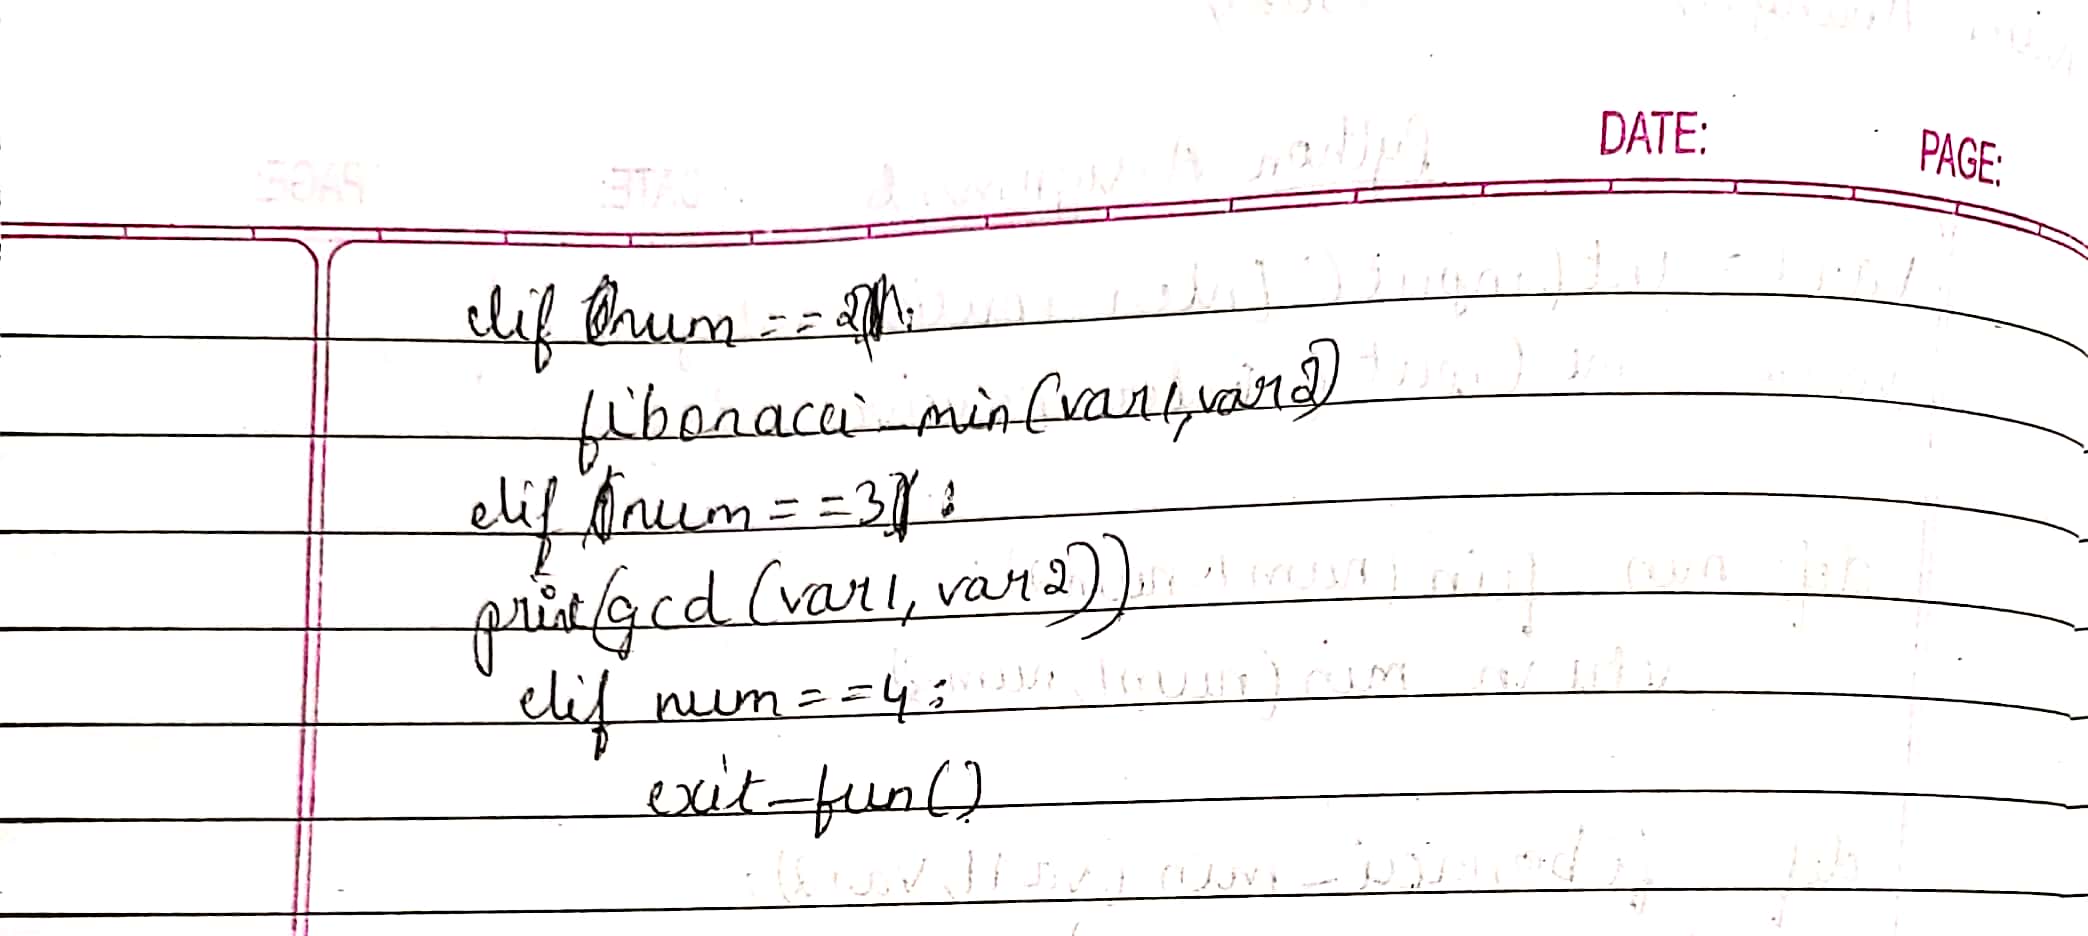 DATE: PAGE:
elif num == 2:
fibonacci_min(var1, var2)
elif num == 3:
print(gcd(var1, var2))
elif num == 4:
exit_fun()